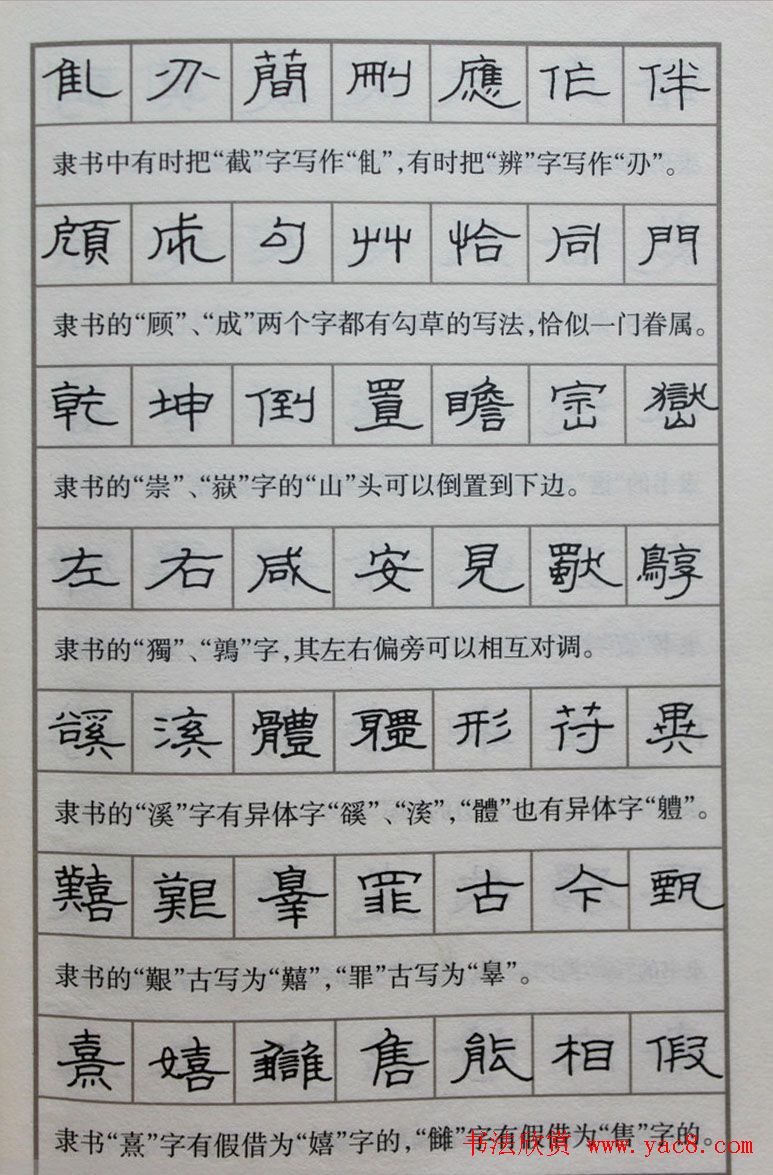 簡 刪 應 作 伴
隶书中有时把“截”字写作“”，有时把“辨”字写作“刅”。
顧 成 勾 艸 恰 同 門
隶书的“顾”、“成”两个字都有勾草的写法，恰似一门眷属。
乾 坤 倒 置 瞻 崈 嶽
隶书的“崇”、“嶽”字的“山”头可以倒置到下边。
左 右 咸 安 見 獨 鶉
隶书的“獨”、“鶉”字，其左右偏旁可以相互对调。
豀 渓 體 軆 形 符 異
隶书的“溪”字有异体字“豀”、“渓”，“體”也有异体字“軆”。
囏 艱 辠 罪 古 今 甄
隶书的“艱”古写为“囏”，“罪”古写为“辠”。
熹 嬉 售 能 相 假
隶书“熹”字有假借为“嬉”字的，“”字有假借为“售”字的。
书法欣赏 www.yac8.com